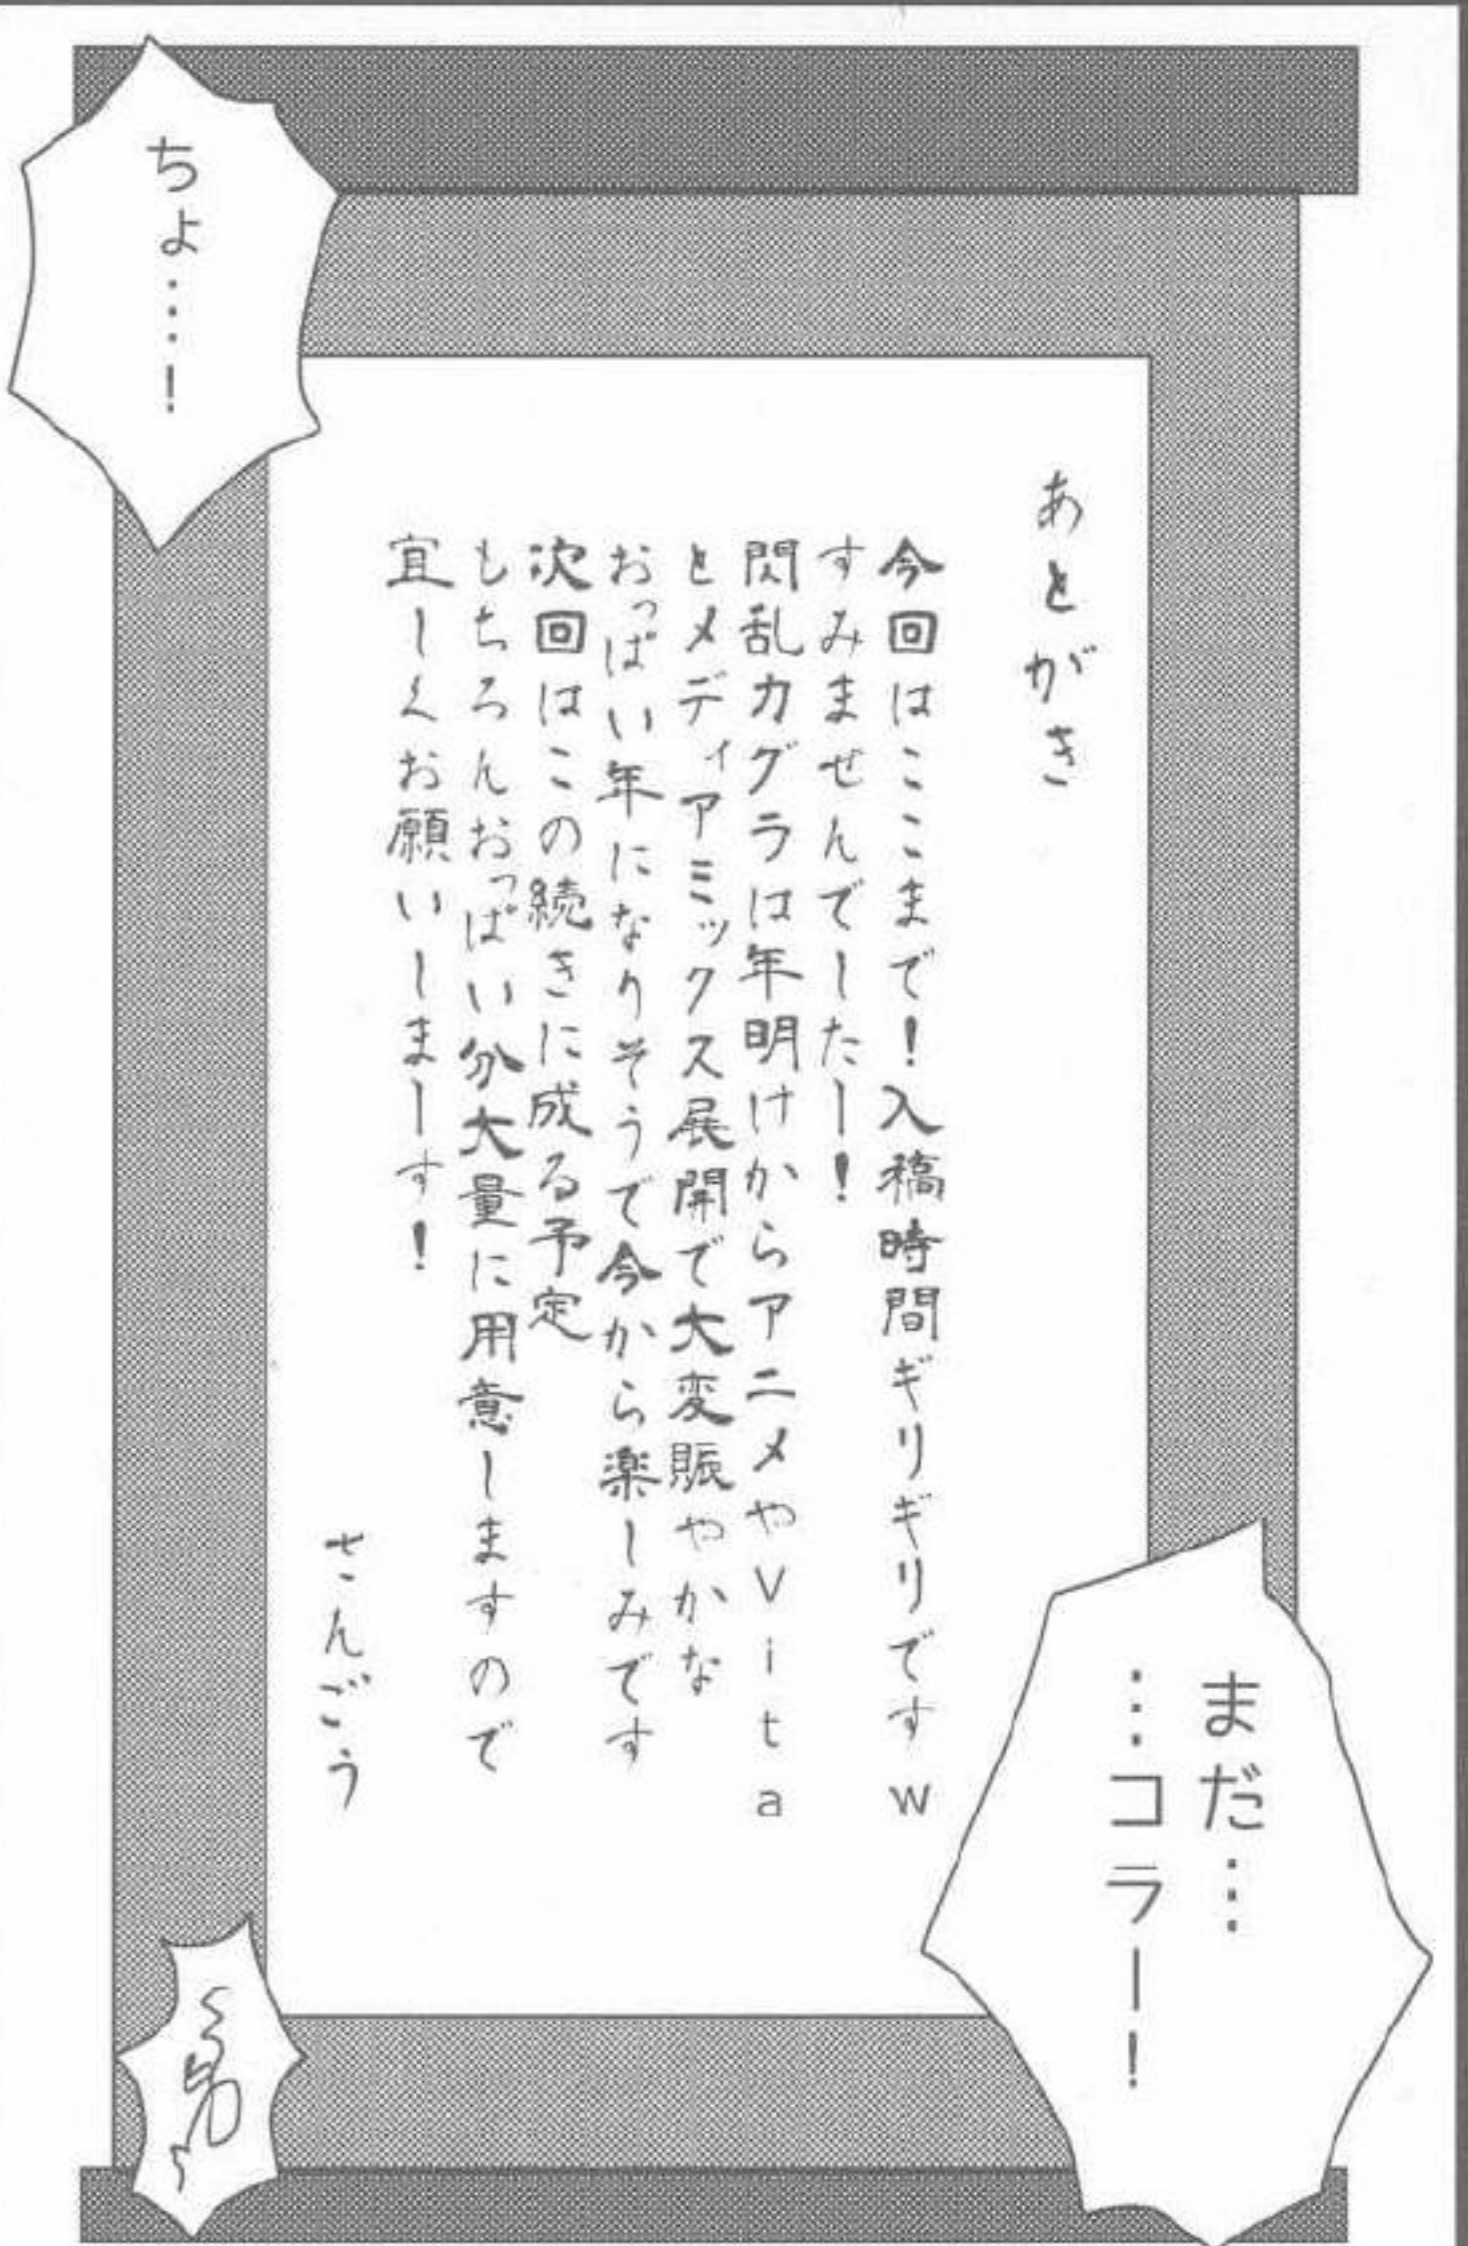 まだ……
…コラー！
あとがき
今回はここまで！入稿時間ギリギリですｗ
すみませんでしたー！
閃乱カグラは年明けからアニメやＶｉｔａ
とメディアミックス展開で大変賑やかな
おっぱい年になりそうで今から楽しみです
次回はこの続きに成る予定
もちろんおっぱい分大量に用意しますので
宜しくお願いしまーす！
さんごう
ちょ……！